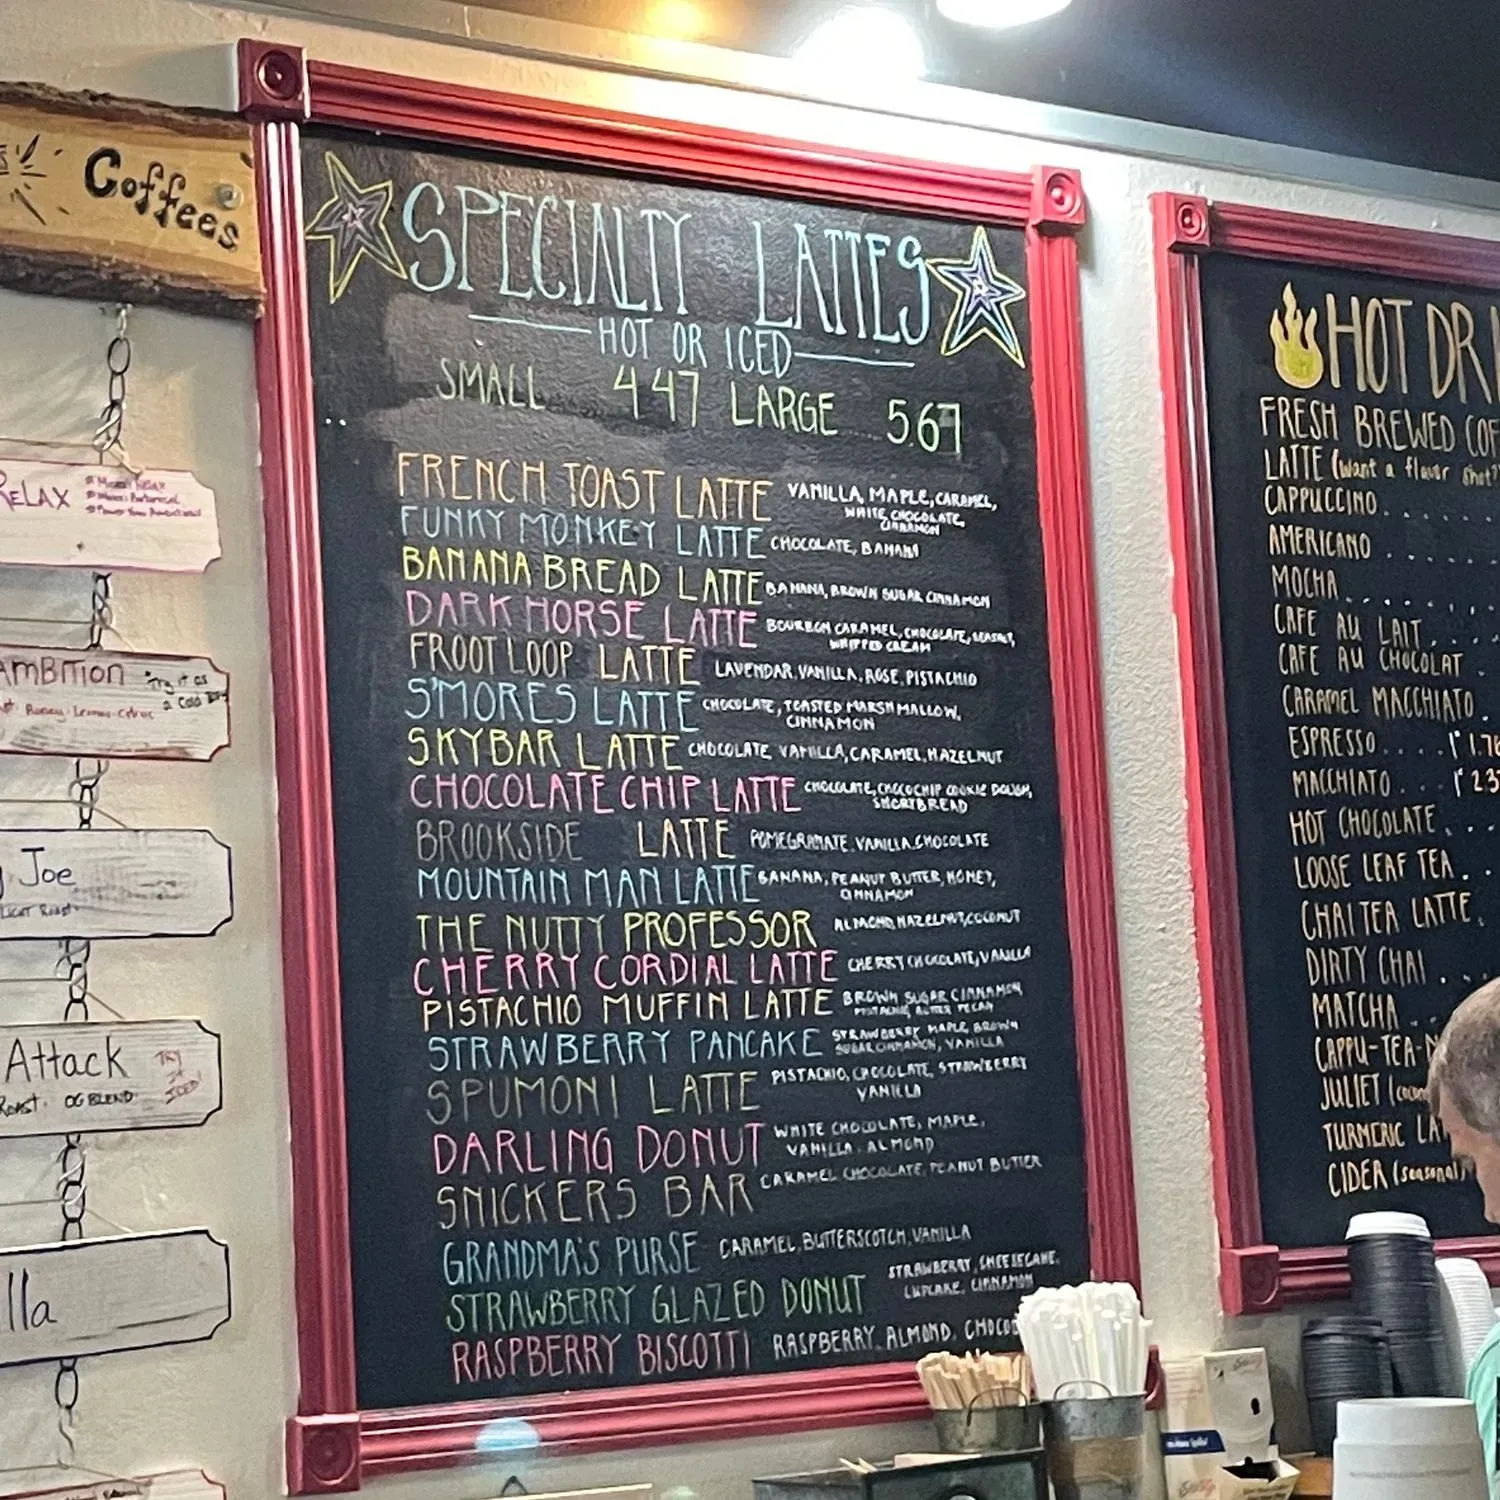 Coffees
RELAX
AMBITION
Try it as
a Cold
Joe
LIGHT ROAST
Attack
ROAST. OG BLEND
TRY
IT
ICED!
lla
SPECIALTY LATTES
HOT OR ICED
SMALL 4.47 LARGE 5.67
FRENCH TOAST LATTE VANILLA, MAPLE, CARAMEL,
WHITE CHOCOLATE,
CINNAMON
FUNKY MONKEY LATTE CHOCOLATE, BANANA
BANANA BREAD LATTE BANANA, BROWN SUGAR CINNAMON
DARK HORSE LATTE BOURBON CARAMEL, CHOCOLATE, SEASALT,
WHIPPED CREAM
FROOT LOOP LATTE LAVENDAR, VANILLA, ROSE, PISTACHIO
S'MORES LATTE CHOCOLATE, TOASTED MARSHMALLOW,
CINNAMON
SKYBAR LATTE CHOCOLATE, VANILLA, CARAMEL, HAZELNUT
CHOCOLATE CHIP LATTE CHOCOLATE, CHOCO CHIP COOKIE DOUGH,
SHORTBREAD
BROOKSIDE LATTE POMEGRANATE, VANILLA, CHOCOLATE
MOUNTAIN MAN LATTE BANANA, PEANUT BUTTER, HONEY,
CINNAMON
THE NUTTY PROFESSOR ALMOND, HAZELNUT, COCONUT
CHERRY CORDIAL LATTE CHERRY CHOCOLATE, VANILLA
PISTACHIO MUFFIN LATTE BROWN SUGAR CINNAMON,
PISTACHIO, BUTTER PECAN
STRAWBERRY PANCAKE STRAWBERRY, MAPLE, BROWN
SUGAR CINNAMON, VANILLA
SPUMONI LATTE PISTACHIO, CHOCOLATE, STRAWBERRY
VANILLA
DARLING DONUT WHITE CHOCOLATE, MAPLE,
VANILLA, ALMOND
SNICKERS BAR CARAMEL CHOCOLATE, PEANUT BUTTER
GRANDMA'S PURSE CARAMEL, BUTTERSCOTCH, VANILLA
STRAWBERRY GLAZED DONUT STRAWBERRY, CHEESECAKE,
CUPCAKE, CINNAMON
RASPBERRY BISCOTTI RASPBERRY, ALMOND, CHOCO
HOT DRI
FRESH BREWED COF
LATTE (want a flavor shot?
CAPPUCCINO . . . . . .
AMERICANO . . . .
MOCHA . . . . . .
CAFE AU LAIT . . .
CAFE AU CHOCOLAT .
CARAMEL MACCHIATO .
ESPRESSO . . . . 1.76
MACCHIATO . . . 2.3
HOT CHOCOLATE . . .
LOOSE LEAF TEA . .
CHAI TEA LATTE .
DIRTY CHAI . . .
MATCHA . .
CAPPU-TEA-N
JULIET (
TURMERIC LA
CIDER (seasonal)